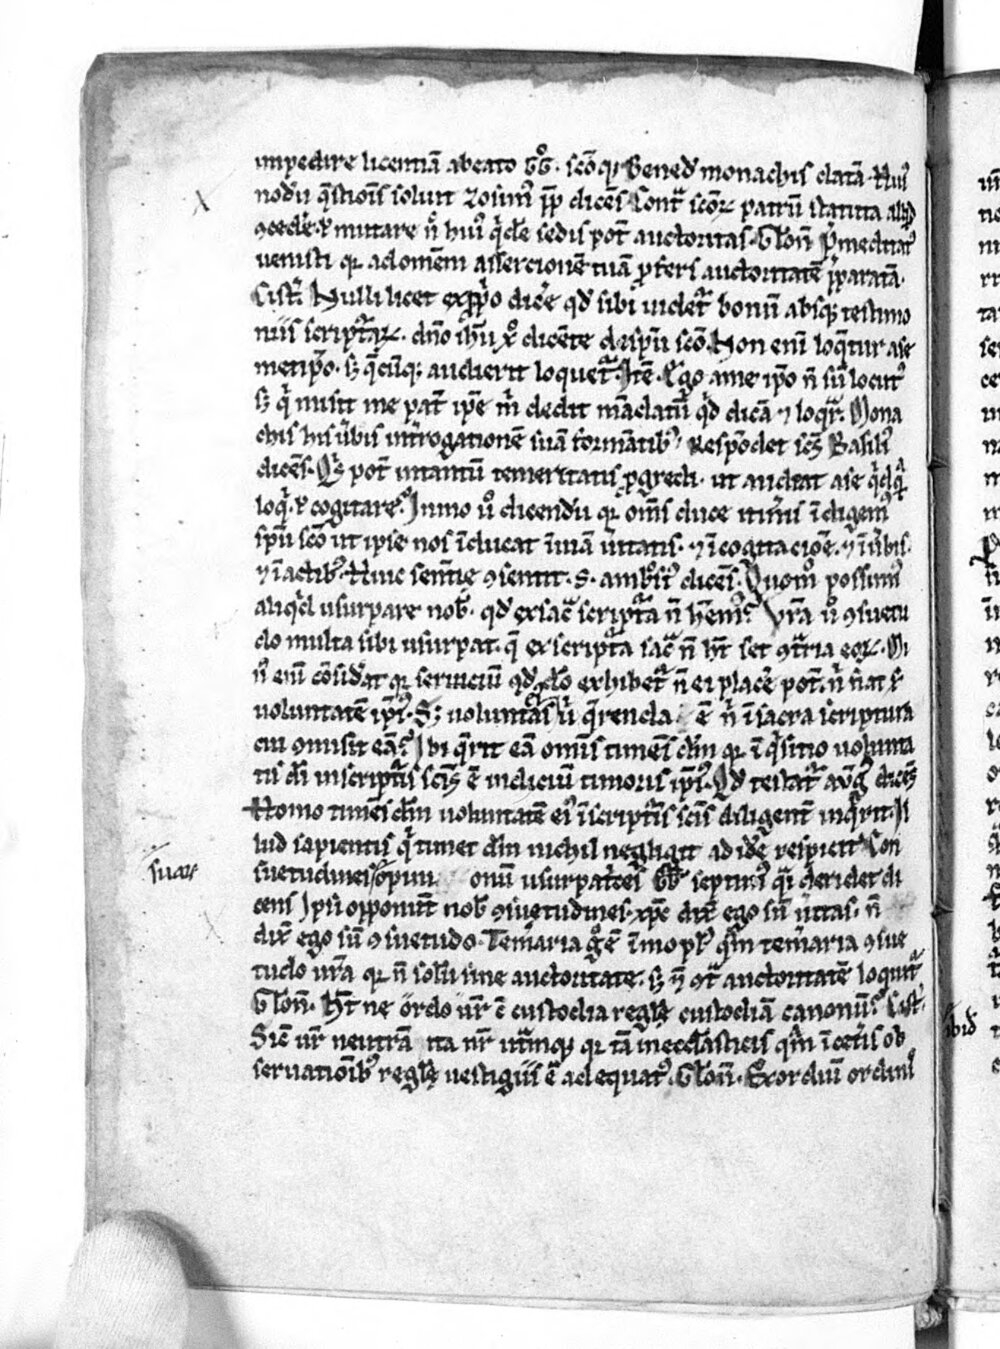 impedire licentiā abeato GG᷎. scōqꝫ Bened monachis datā. Huiꝰ
modi q̄stionē soluit Zosimꝰ pp̄ dicēs. Cont᷑ scōꝝ patrū statuta aliqͥd
ꝯcedē. ł mutare n̄ huiꝰ qͥdē sedis pot̄ auctoritas. Cłon̄ p̄meditatꝰ
uenisti qꝛ adomēm assercionē tuā ꝓfers auctoritatē p̄paratā.
Cist᷑. Nulli licet exꝓpͥo dicͤe qd̄ sibi uidet᷑ bonū absqꝫ testimo
niis scriptͣaꝝ. dn̄o ih̄u xͦ dicēte dͤ sp̄u scō. Non enī loq̄tur ase
metipͦo. sꝫ q̄cūqꝫ audierit loquet᷑. Itē. Ego ame ipͦo n̄ sū locutꝰ
sꝫ qͥ misit me pat᷑ ipͤe m̄ dedit mādatū qͥd dicā ⁊ loqͣr. Mona
chis his ūbis int᷑rogationē suā formātibꝰ. Respōdet sc̄s Basiliꝰ
dicēs. Qͥs pot̄ intantū temeritatis ꝓgredi. ut audeat ase qͥdqͣ
loqͥ. ł cogitare? Inmo uͦ dicendū qꝛ om̄s duce itin̄is īdigemꝰ
sp̄u scō ut ipse nos īducat īuiā ūitatis. ⁊ īcogitacioē. ⁊ īūbis.
⁊ īactibꝰ. Huic sentn̄ie ꝯsentit .S. ambrͦ dicēs. Quomͦ possumꝰ
aliqͥd usurpare nob̄. qd̄ exsac᷑ scriptͣa n̄ hēmꝰ? Vr̄a uͦ ꝯsuetu
do multa sibi usurpat. q̄ exscriptͣa sac᷑ n̄ ht̄ set ꝯtͣria eoꝝ. Mi
nͦ enī cōsid̄at qꝛ seruiciū qd̄ dō exhibet᷑ n̄ ei placͤe pot̄. n̄ fiat s̄
voluntatē ipͥꝰ. Sꝫ voluntas uͦ q̄renda ē n̄ īsacra scriptura
cui ꝯmisit eā? Ibi q̄rit eā omīs timēs dm̄ qꝛ īqͥsitio uolunta
tis dī inscriptͥis scīs ē indiciū timoris ipͥꝰ. Qd̄ testat᷑ aug᷑ dicēs
Homo timēs dm̄ uoluntatē eiꝰ īscriptͥis scīs diligent̄ inqͥrit. Il
lud sapientis qͥ timet dm̄ nichil negligit ad idē respicit. Con
suetudines opiniionū usurpatͦes GG᷑ septimꝰ qͥ deridet di
cens Ipsi opponūt nob̄ ꝯsuetudines. xp̄c dix̄ ego sū ūitas. n̄
dix̄ ego sū ꝯsuetudo. Tem̄aria gͦ ē īmo plꝰ qͣm tem̄aria ꝯsue
tudo ur̄a qꝛ n̄ solū sine auctoritate. sꝫ n̄ ꝯtͣ auctoritatē loquit᷑
Cłon̄. Ht̄ ne ordo ūr ē custodia reglę custodiā canonū? Cist᷑.
Sic ūr neutrā ita nr̄ ut᷑mqꝫ qꝛ tā inecclasticis qͣm īcet̄is ob
seruationibꝰ reglę uestigiis ē adequatꝰ. Cłon̄. Exordiū ordinis
suar
ibid